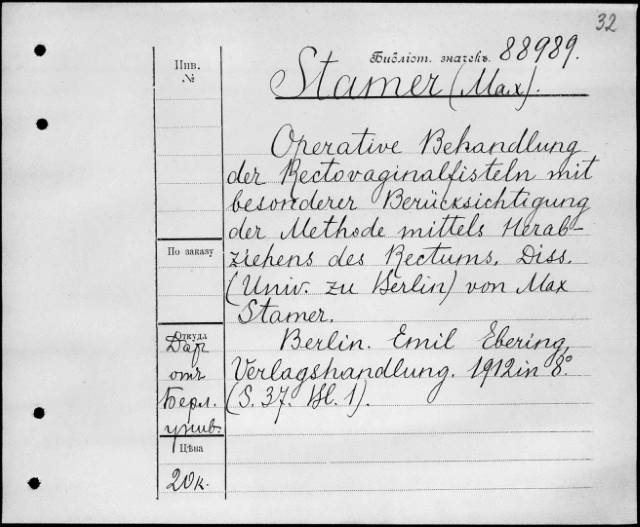 32
Библіот. значекъ. 88989.
Инв.
№
Stamer (Max).
Operative Behandlung
der Rectovaginalfisteln mit
besonderer Berücksichtigung
der Methode mittels Herab-
ziehens des Rectums. Diss.
(Univ. zu Berlin) von Max
Stamer.
Berlin. Emil Ebering,
Verlagshandlung. 1912 in 8°.
(S. 37. Bl. 1).
По заказу
Откуда
Дар
отъ
Берл.
унив.
Цѣна
20 к.